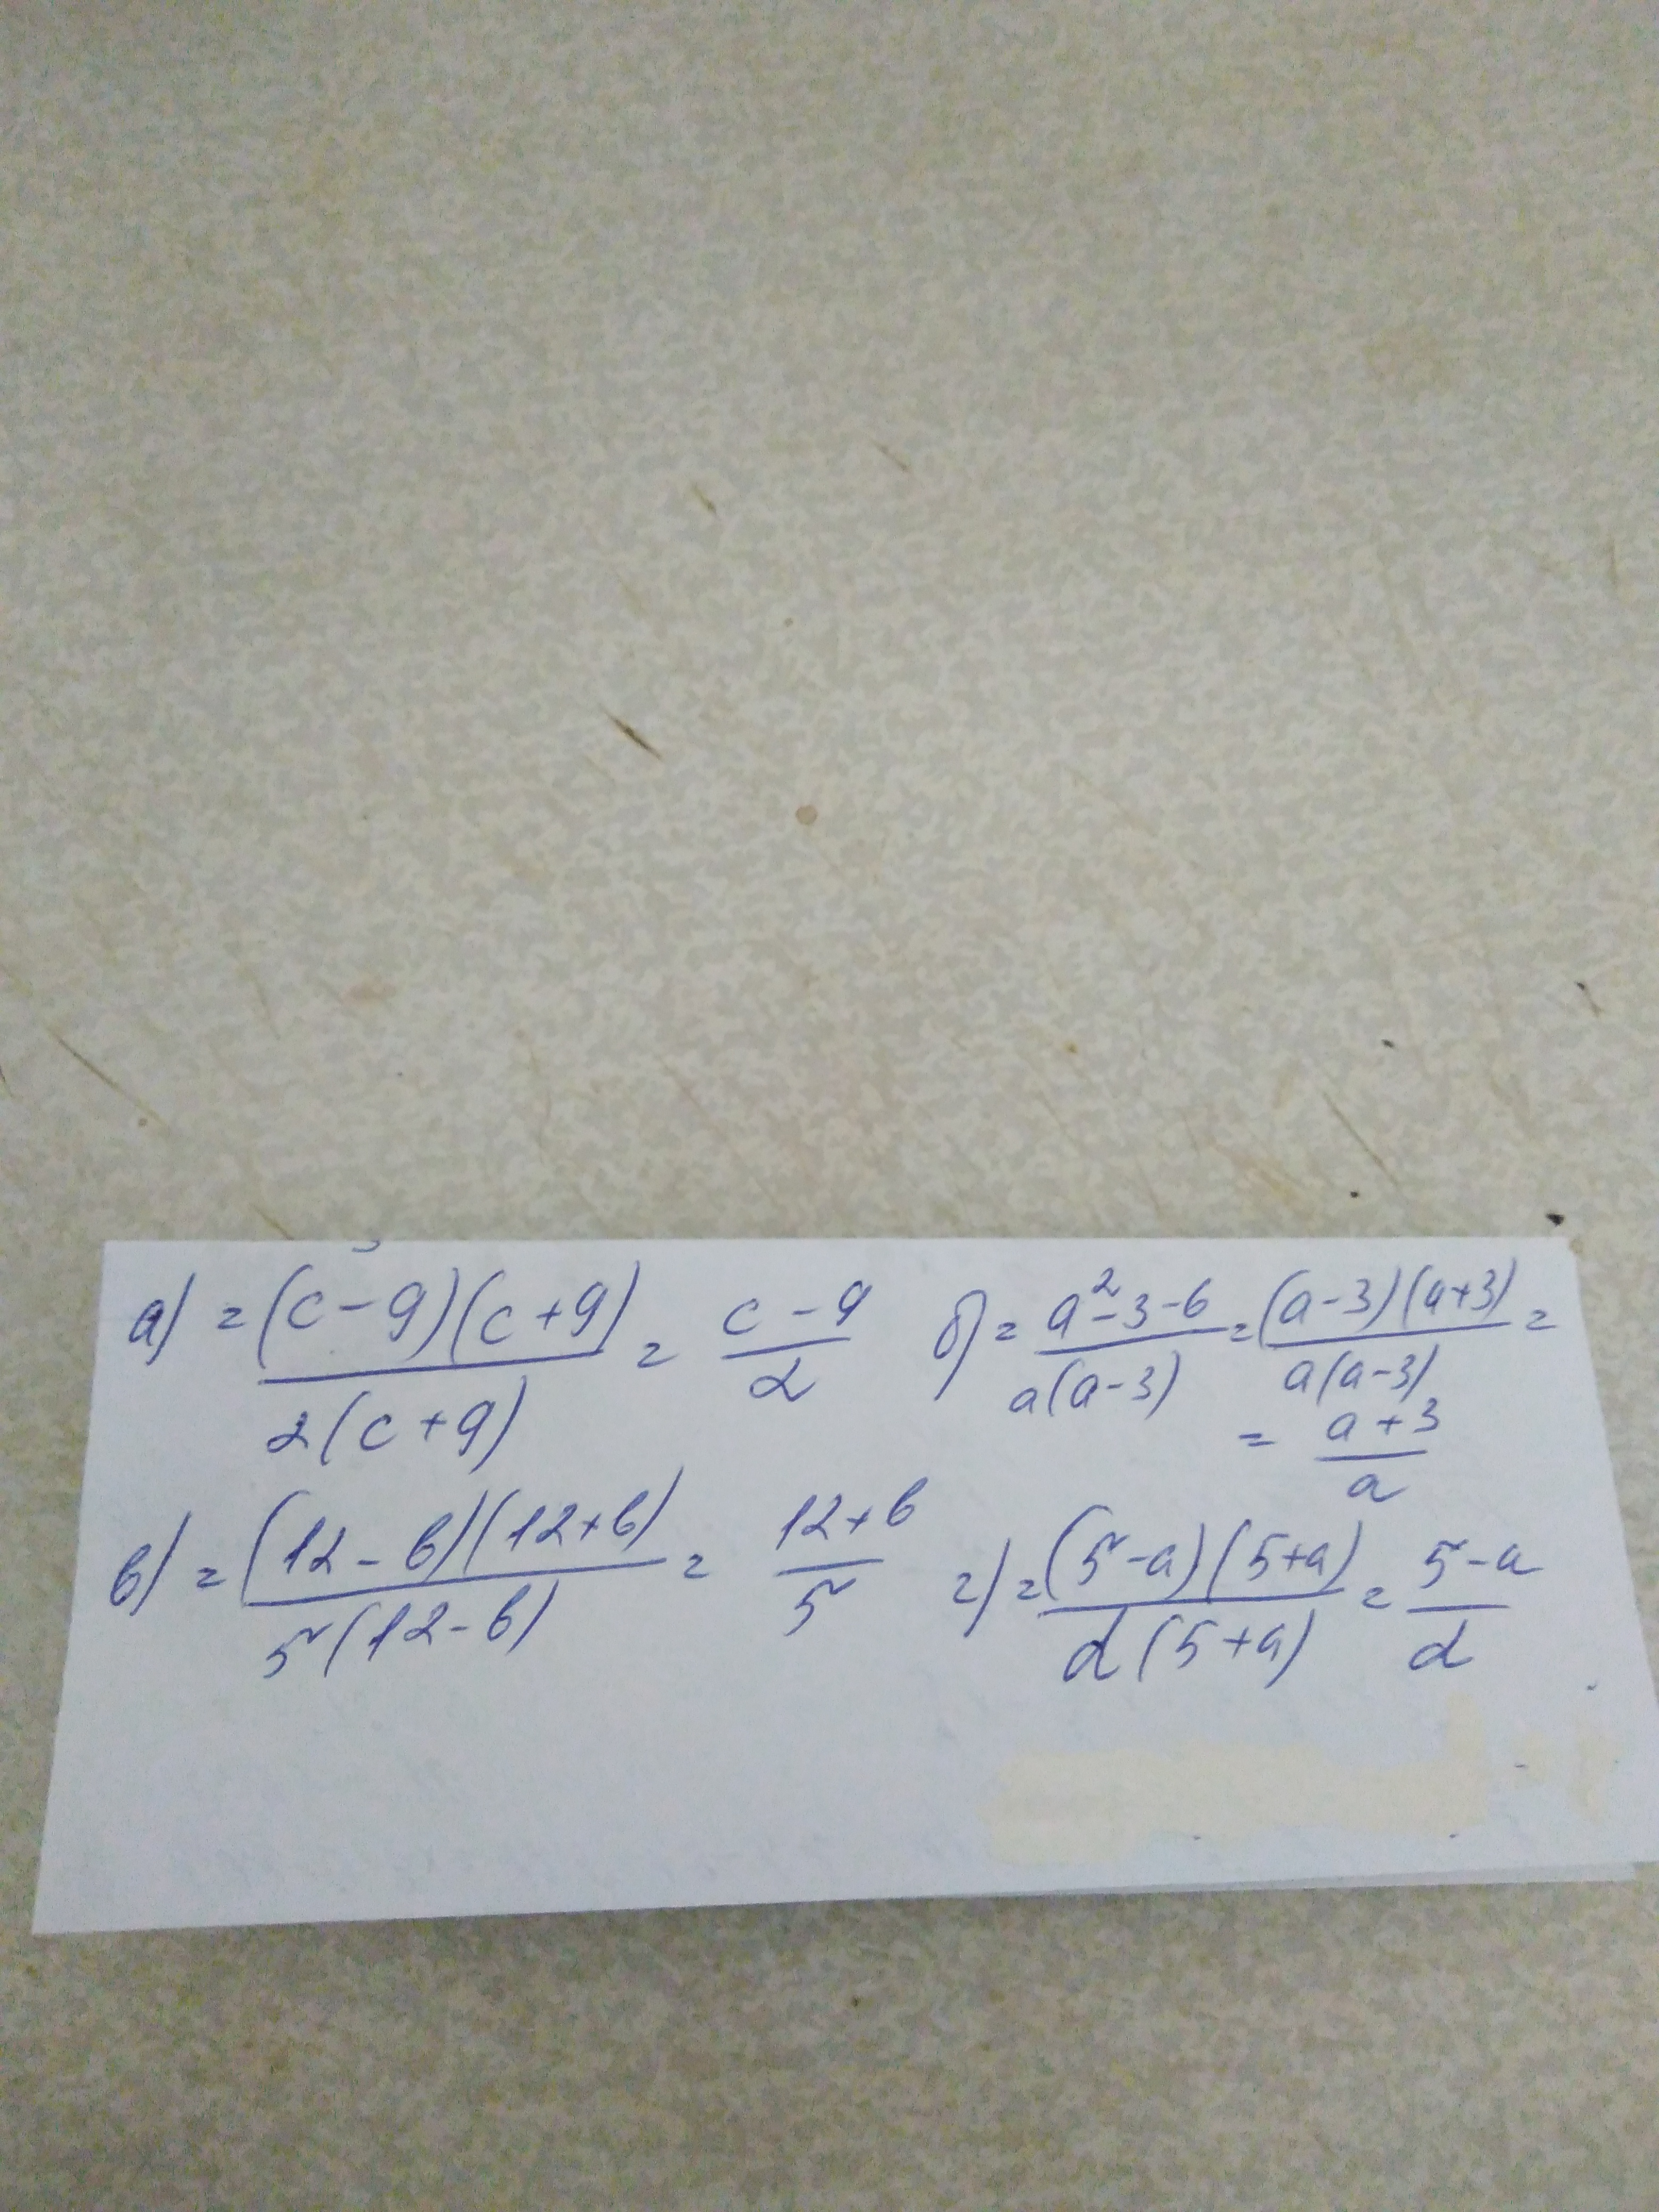 а) = (c-9)(c+9) / 2(c+9) = c-9 / 2
б) = a²-3-6 / a(a-3) = (a-3)(a+3) / a(a-3) =
= a+3 / a
в) = (12-b)(12+b) / 5(12-b) = 12+b / 5
г) = (5-a)(5+a) / d(5+a) = 5-a / d